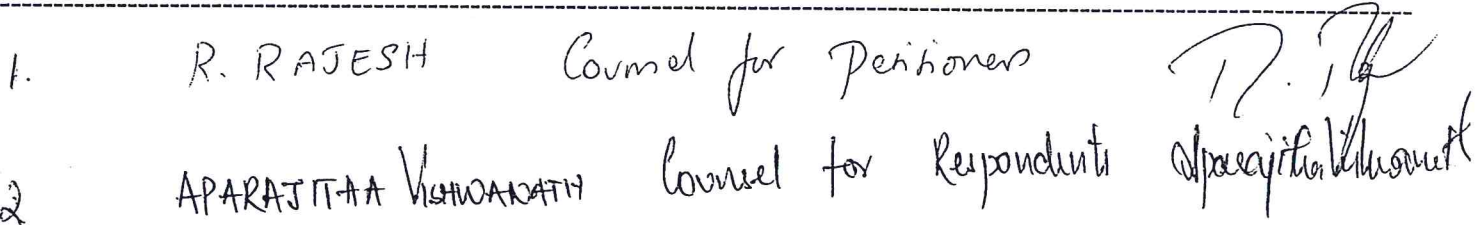 1. R. RAJESH Counsel for Petitioners
2 APARAJITAA VISHWANATH Counsel for Respondents